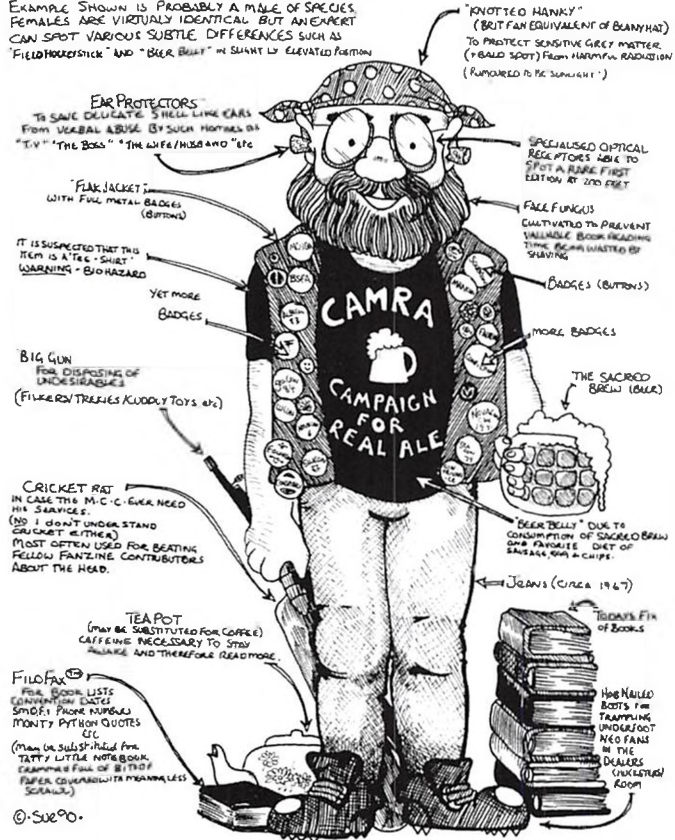 EXAMPLE SHOWN IS PROBABLY A MALE OF SPECIES
FEMALES ARE VIRTUALY IDENTICAL BUT AN EXPERT
CAN SPOT VARIOUS SUBTLE DIFFERENCES SUCH AS
"FIELD HOCKEY STICK" AND "BEER BELLY" IN SLIGHTLY ELEVATED POSITION
"KNOTTED HANKY"
(BRIT FAN EQUIVALENT OF BEANY HAT)
TO PROTECT SENSITIVE GREY MATTER
(+ BALD SPOT) FROM HARMFUL RADIATION
(RUMOURED TO BE 'SUNLIGHT')
EAR PROTECTORS
TO SAVE DELICATE SHELL LIKE EARS
FROM VERBAL ABUSE BY SUCH HORRORS AS
"T.V" "THE BOSS" "THE WIFE/HUSBAND" ETC
SPECIALISED OPTICAL
RECEPTORS ABLE TO
SPOT A RARE FIRST
EDITION AT 200 FEET
"FLAK JACKET"
WITH FULL METAL BADGES
(BUTTONS)
FACE FUNGUS
CULTIVATED TO PREVENT
VALUABLE BOOK READING
TIME BEING WASTED BY
SHAVING
IT IS SUSPECTED THAT THIS
ITEM IS A 'TEE-SHIRT'
WARNING - BIOHAZARD
BADGES (BUTTONS)
YET MORE
BADGES
MORE BADGES
BSFA
CAMRA
CAMPAIGN
FOR
REAL ALE
BIG GUN
FOR DISPOSING OF
UNDESIRABLES
(FILKERS/TREKIES/CUDDLY TOYS etc)
THE SACRED
BREW (BEER)
CRICKET BAT
IN CASE THE M.C.C. EVER NEED
HIS SERVICES.
(NO I DON'T UNDERSTAND
CRICKET EITHER)
MOST OFTEN USED FOR BEATING
FELLOW FANZINE CONTRIBUTORS
ABOUT THE HEAD.
"BEER BELLY" DUE TO
CONSUMPTION OF SACRED BREW
AND FAVORITE DIET OF
SAUSAGE, EGG & CHIPS.
JEANS (CIRCA 1967)
TEAPOT
(MAY BE SUBSTITUTED FOR COFFEE)
CAFFEINE NECESSARY TO STAY
AWAKE AND THEREFORE READ MORE.
TODAYS FIX
OF BOOKS
FILOFAX TM
FOR BOOK LISTS
CONVENTION DATES
SMOF.1 PHONE NUMBERS
MONTY PYTHON QUOTES
ETC
(May be substituted for
TATTY LITTLE NOTEBOOK
CRAMMED FULL OF BITS OF
PAPER COVERED WITH MEANINGLESS
SCRAWL)
HOB NAILED
BOOTS FOR
TRAMPLING
UNDERFOOT
NEO FANS
IN THE
DEALERS
(HUCKSTERS)
ROOM
©. SUE 90.